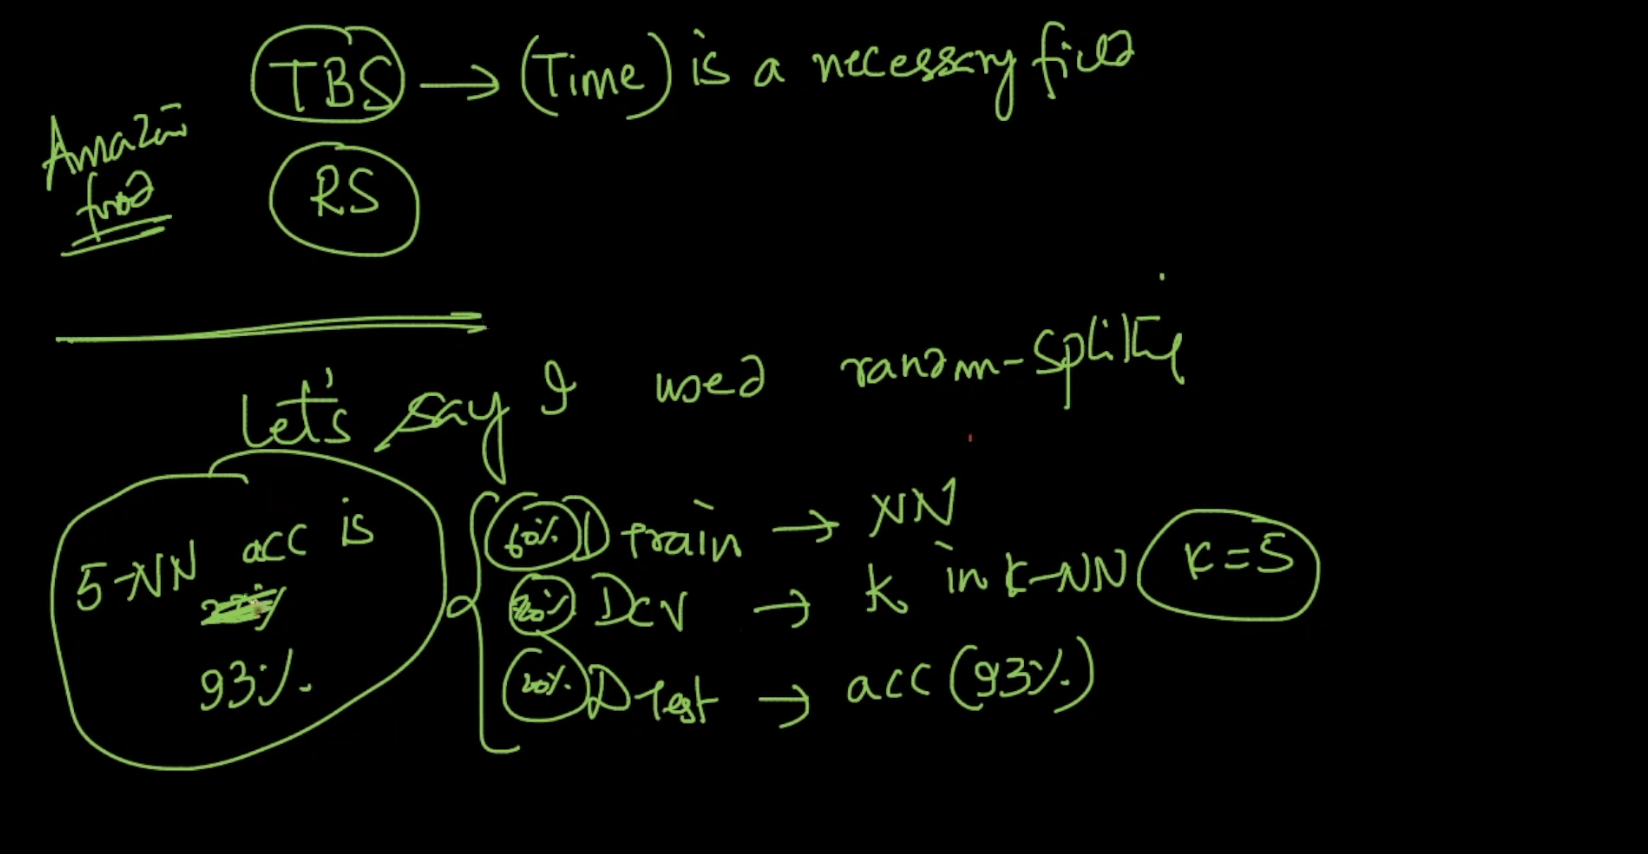 TBS → (Time) is a necessary field
Amazon
food
RS
Let's say I used random-splitting
5-NN acc is
93%.
60% Dtrain → NN
20% Dcv → K in K-NN K=5
20% Dtest → acc (93%)